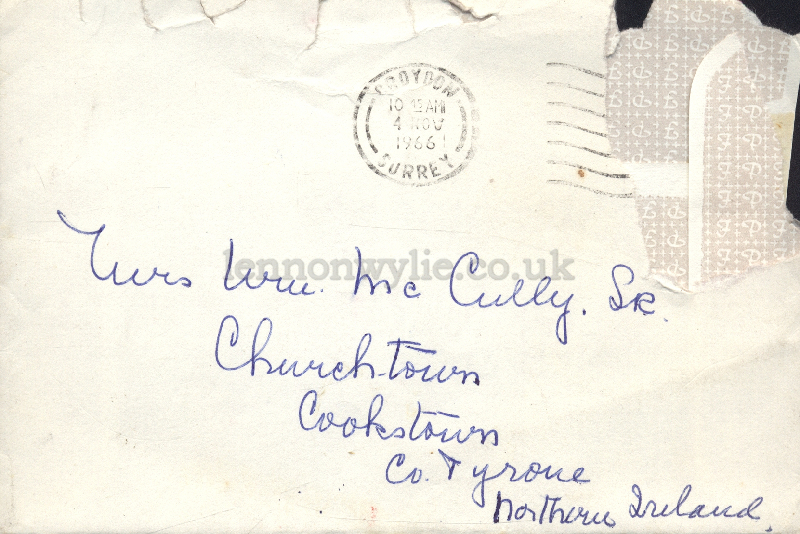 CROYDON
10 15 AM
4 NOV
1966
SURREY
Mrs Wm. Mc Cully, Sr.
lennonwylie.co.uk
Churchtown
Cookstown
Co. Tyrone
Northern Ireland.